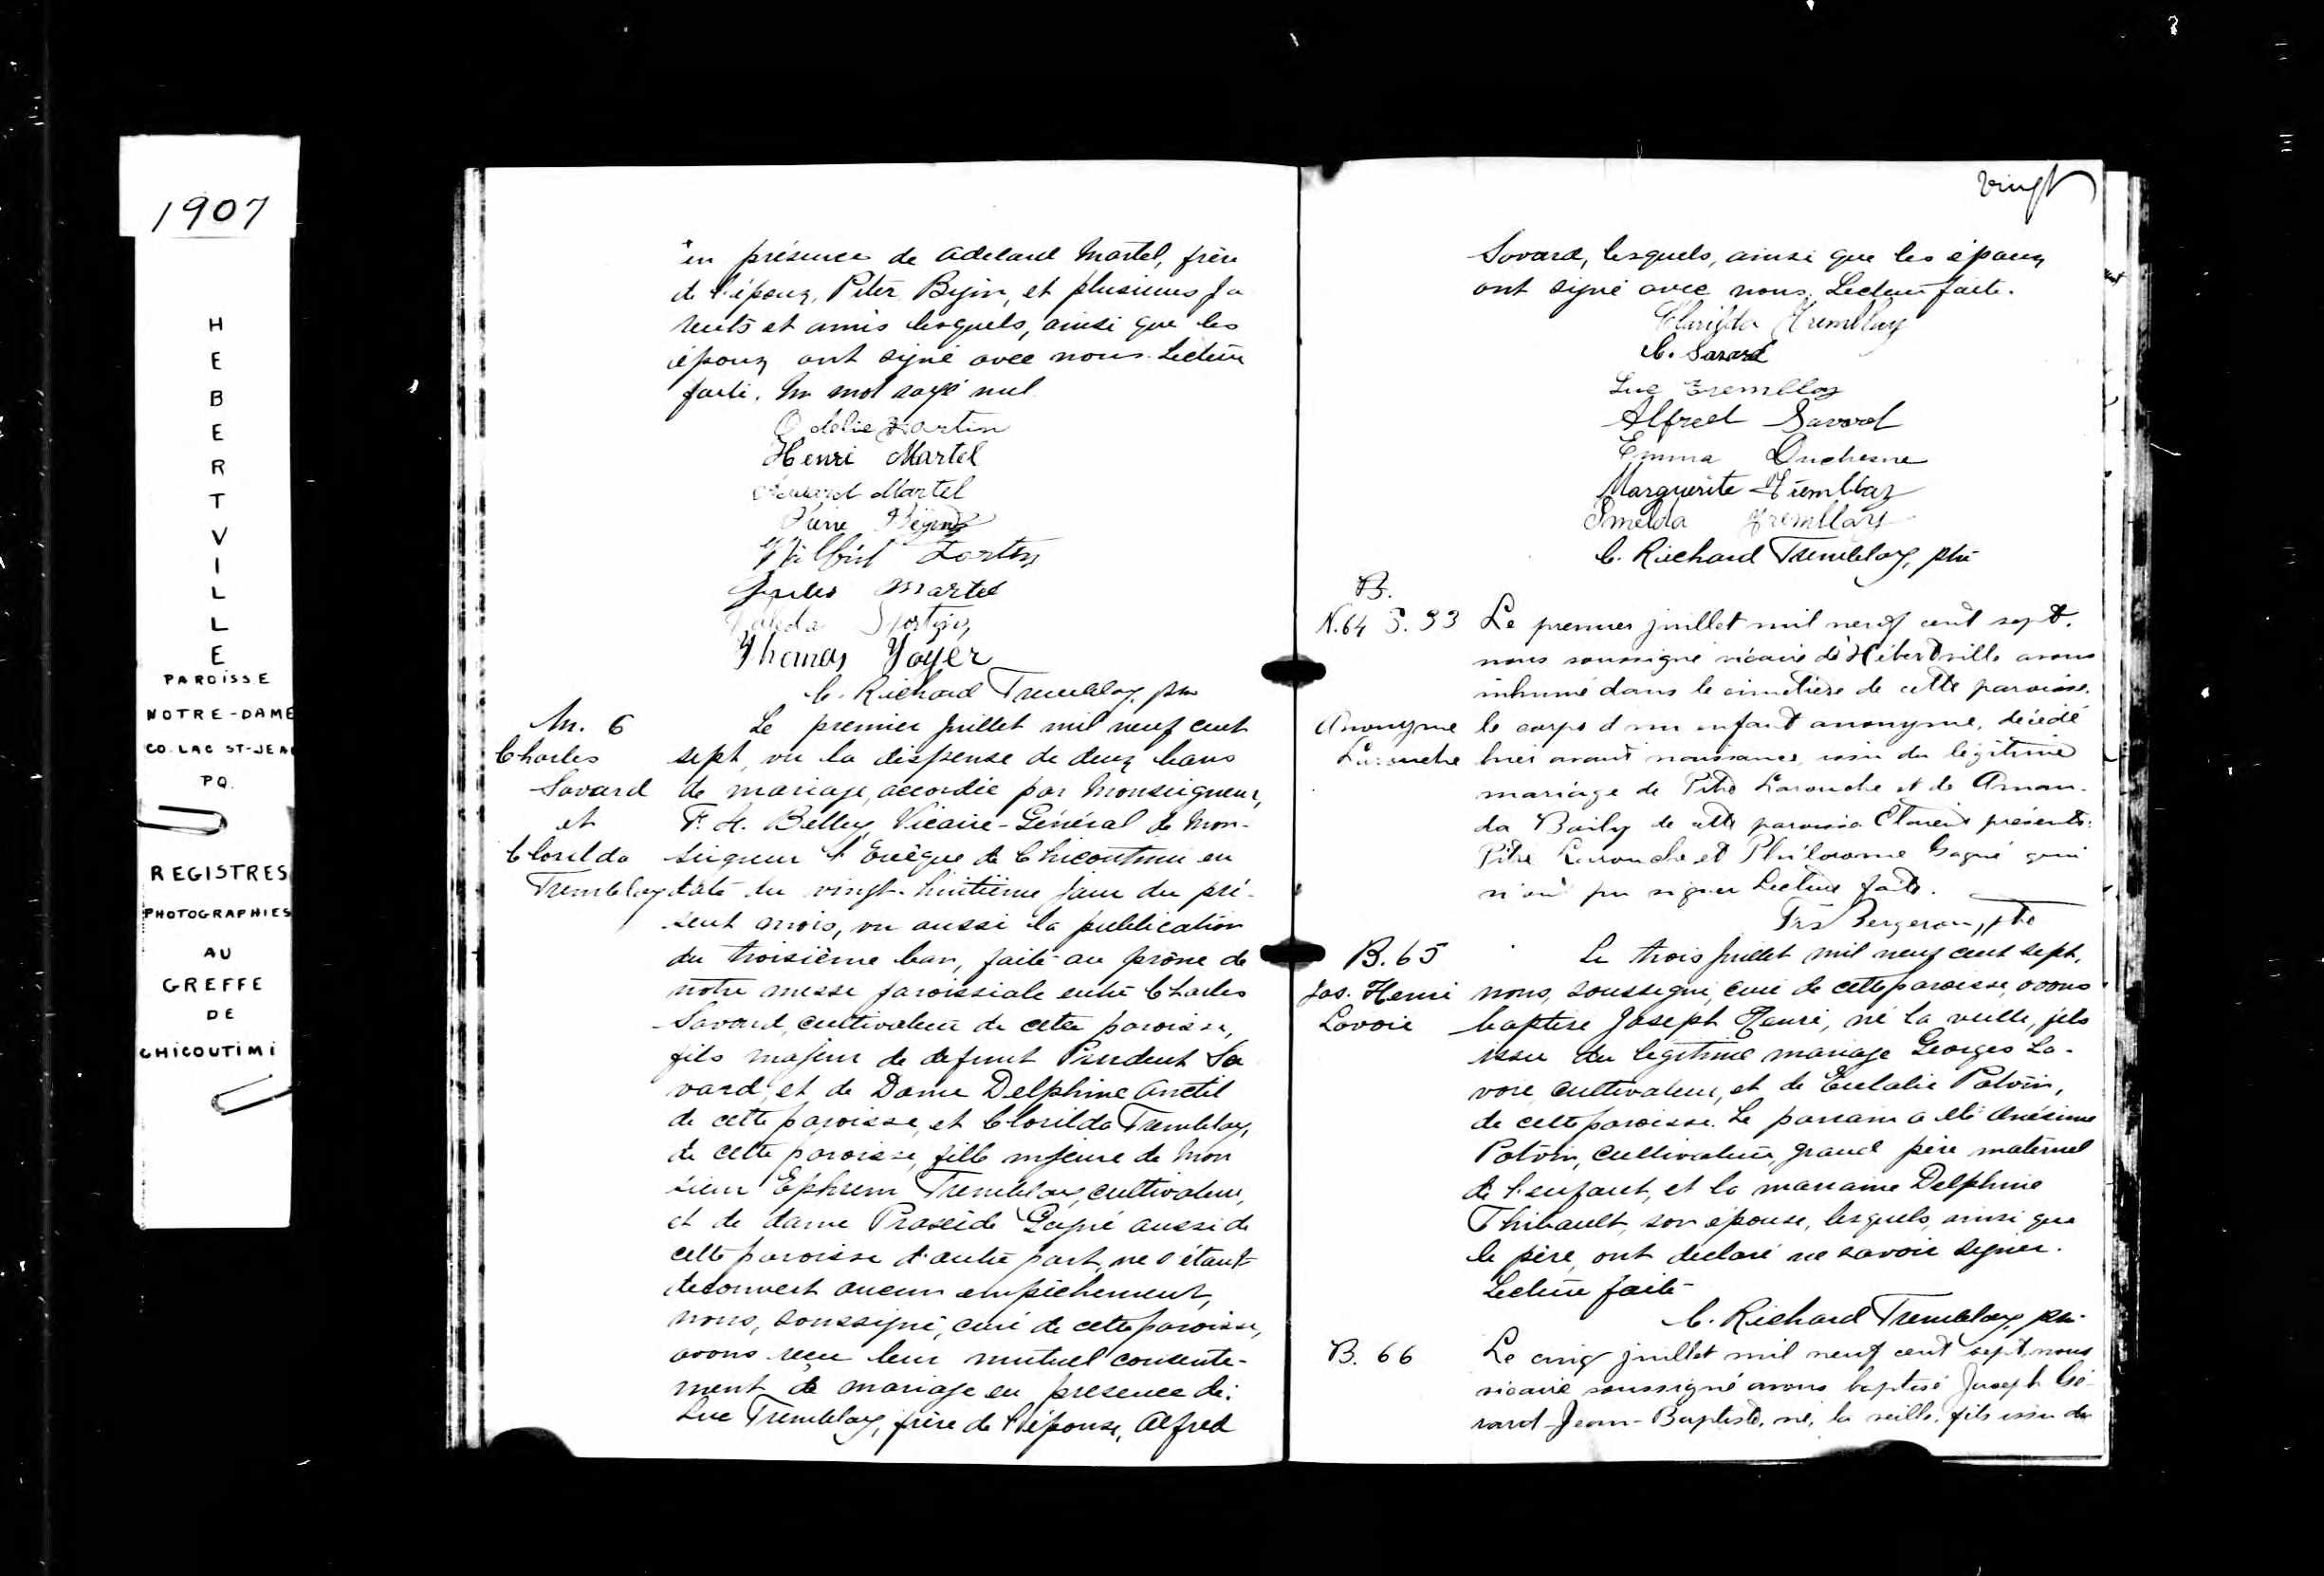 1907
HEBERTVILLE
PAROISSE
NOTRE-DAME
CO. LAC ST-JEA
PQ.
REGISTRES
PHOTOGRAPHIES
AU
GREFFE
DE
CHICOUTIMI
en présence de Adelard Martel, frère
de l'époux, Piter Bijin, et plusieurs pa
rents et amis lesquels, ainsi que les
époux ont signé avec nous. Lecture
faite. Un mot rayé nul
Odelie Martin
Henri Martel
Martel
Pierre
Wilbrid Fortin
Jules Martel
Fortin
Thomas Voyer
C. Richard Tremblay, ptre
M. 6
Charles
Savard
et
Clorilda
Tremblay
Le premier juillet mil neuf cent
sept, vu la dispense de deux bans
de mariage, accordée par Monseigneur,
F. H. Belley, Vicaire-Général de Mon-
seigneur l'Evêque de Chicoutimi en
date du vingt-huitième jour du pré-
sent mois, vu aussi la publication
du troisième ban, faite au prône de
notre messe paroissiale entre Charles
Savard, cultivateur de cette paroisse,
fils majeur de defunt Prudent Sa
vard, et de Dame Delphine Anctil
de cette paroisse, et Clorilda Tremblay,
de cette paroisse, fille mineure de Mon
sieur Ephrem Tremblay, cultivateur,
et de dame Praxède Gagné aussi de
cette paroisse d'autre part, ne s'étant
decouvert aucun empêchement,
nous, soussigné, curé de cette paroisse,
avons reçu leur mutuel consente-
ment de mariage en presence de:
Luc Tremblay, frère de l'épouse, Alfred
vingt
Savard, lesquels, ainsi que les époux
ont signé avec nous. Lecture faite.
Clarilda Tremblay
C. Savard
Luc Tremblay
Alfred Savard
Emma Duchesne
Marguerite Tremblay
Imelda Tremblay
C. Richard Tremblay, ptre
B.
N. 64 S. 33
Anonyme
Larouche
Le premier juillet mil neuf cent sept,
nous soussigné vicaire d'Hébertville avons
inhumé dans le cimetière de cette paroisse,
le corps d'un enfant anonyme, décédé
hier avant naissance, issu du légitime
mariage de Pitre Larouche et de Aman-
da Baily de cette paroisse. Etaient présents:
Pitre Larouche et Philorome Gagné qui
n'ont pu signer Lecture faite.
Frs Bergeron, ptre
B. 65
Jos. Henri
Lavoie
Le trois juillet mil neuf cent sept,
nous, soussigné, curé de cette paroisse, avons
baptisé Joseph Henri, né la veille, fils
issu du légitime mariage Georges La-
voie, cultivateur, et de Eulalie Potvin,
de cette paroisse. Le parrain a été Onésime
Potvin, cultivateur, grand père maternel
de l'enfant, et la marraine Delphine
Thibault, son épouse, lesquels, ainsi que
le père, ont déclaré ne savoir signer.
Lecture faite
C. Richard Tremblay, ptre
B. 66
Le cinq juillet mil neuf cent sept, nous
vicaire soussigné avons baptisé Joseph Gé-
rard-Jean-Baptiste, né, la veille, fils issu du